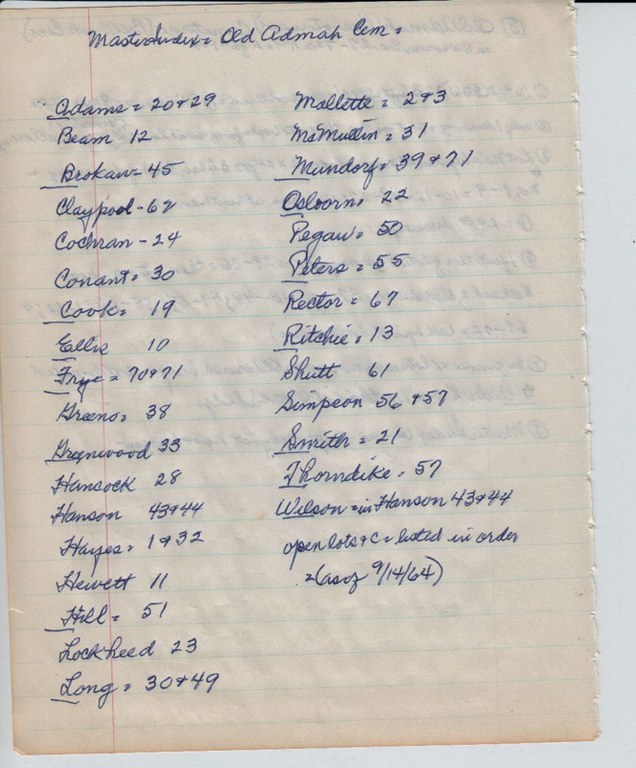 Master Index = Old Admah Cem.
Adams = 20 & 29
Beam 12
Brokaw = 45
Claypool - 62
Cochran - 24
Conant = 30
Cook = 19
Ellis 10
Frye = 70 & 71
Greeno = 38
Greenwood 33
Hancock 28
Hanson 43 & 44
Hayes = 1 & 32
Hewett 11
Hill = 51
Lockheed 23
Long = 30 & 49
Mallette = 2 & 3
McMullin = 31
Mundorf = 39 & 71
Osborn = 22
Pegau = 50
Peters = 55
Rector = 67
Ritchie = 13
Shutt 61
Simpson 56 & 57
Smith = 21
Thorndike = 57
Wilson = in Hanson 43 & 44
open lots & C = listed in order
= (as of 9/14/64)